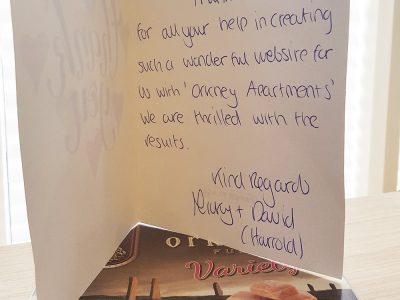 for all your help in creating
such a wonderful website for
us with 'Orkney Apartments'
we are thrilled with the
results.
Kind Regards
+ David
(Harrold)
Thank
you
Variety